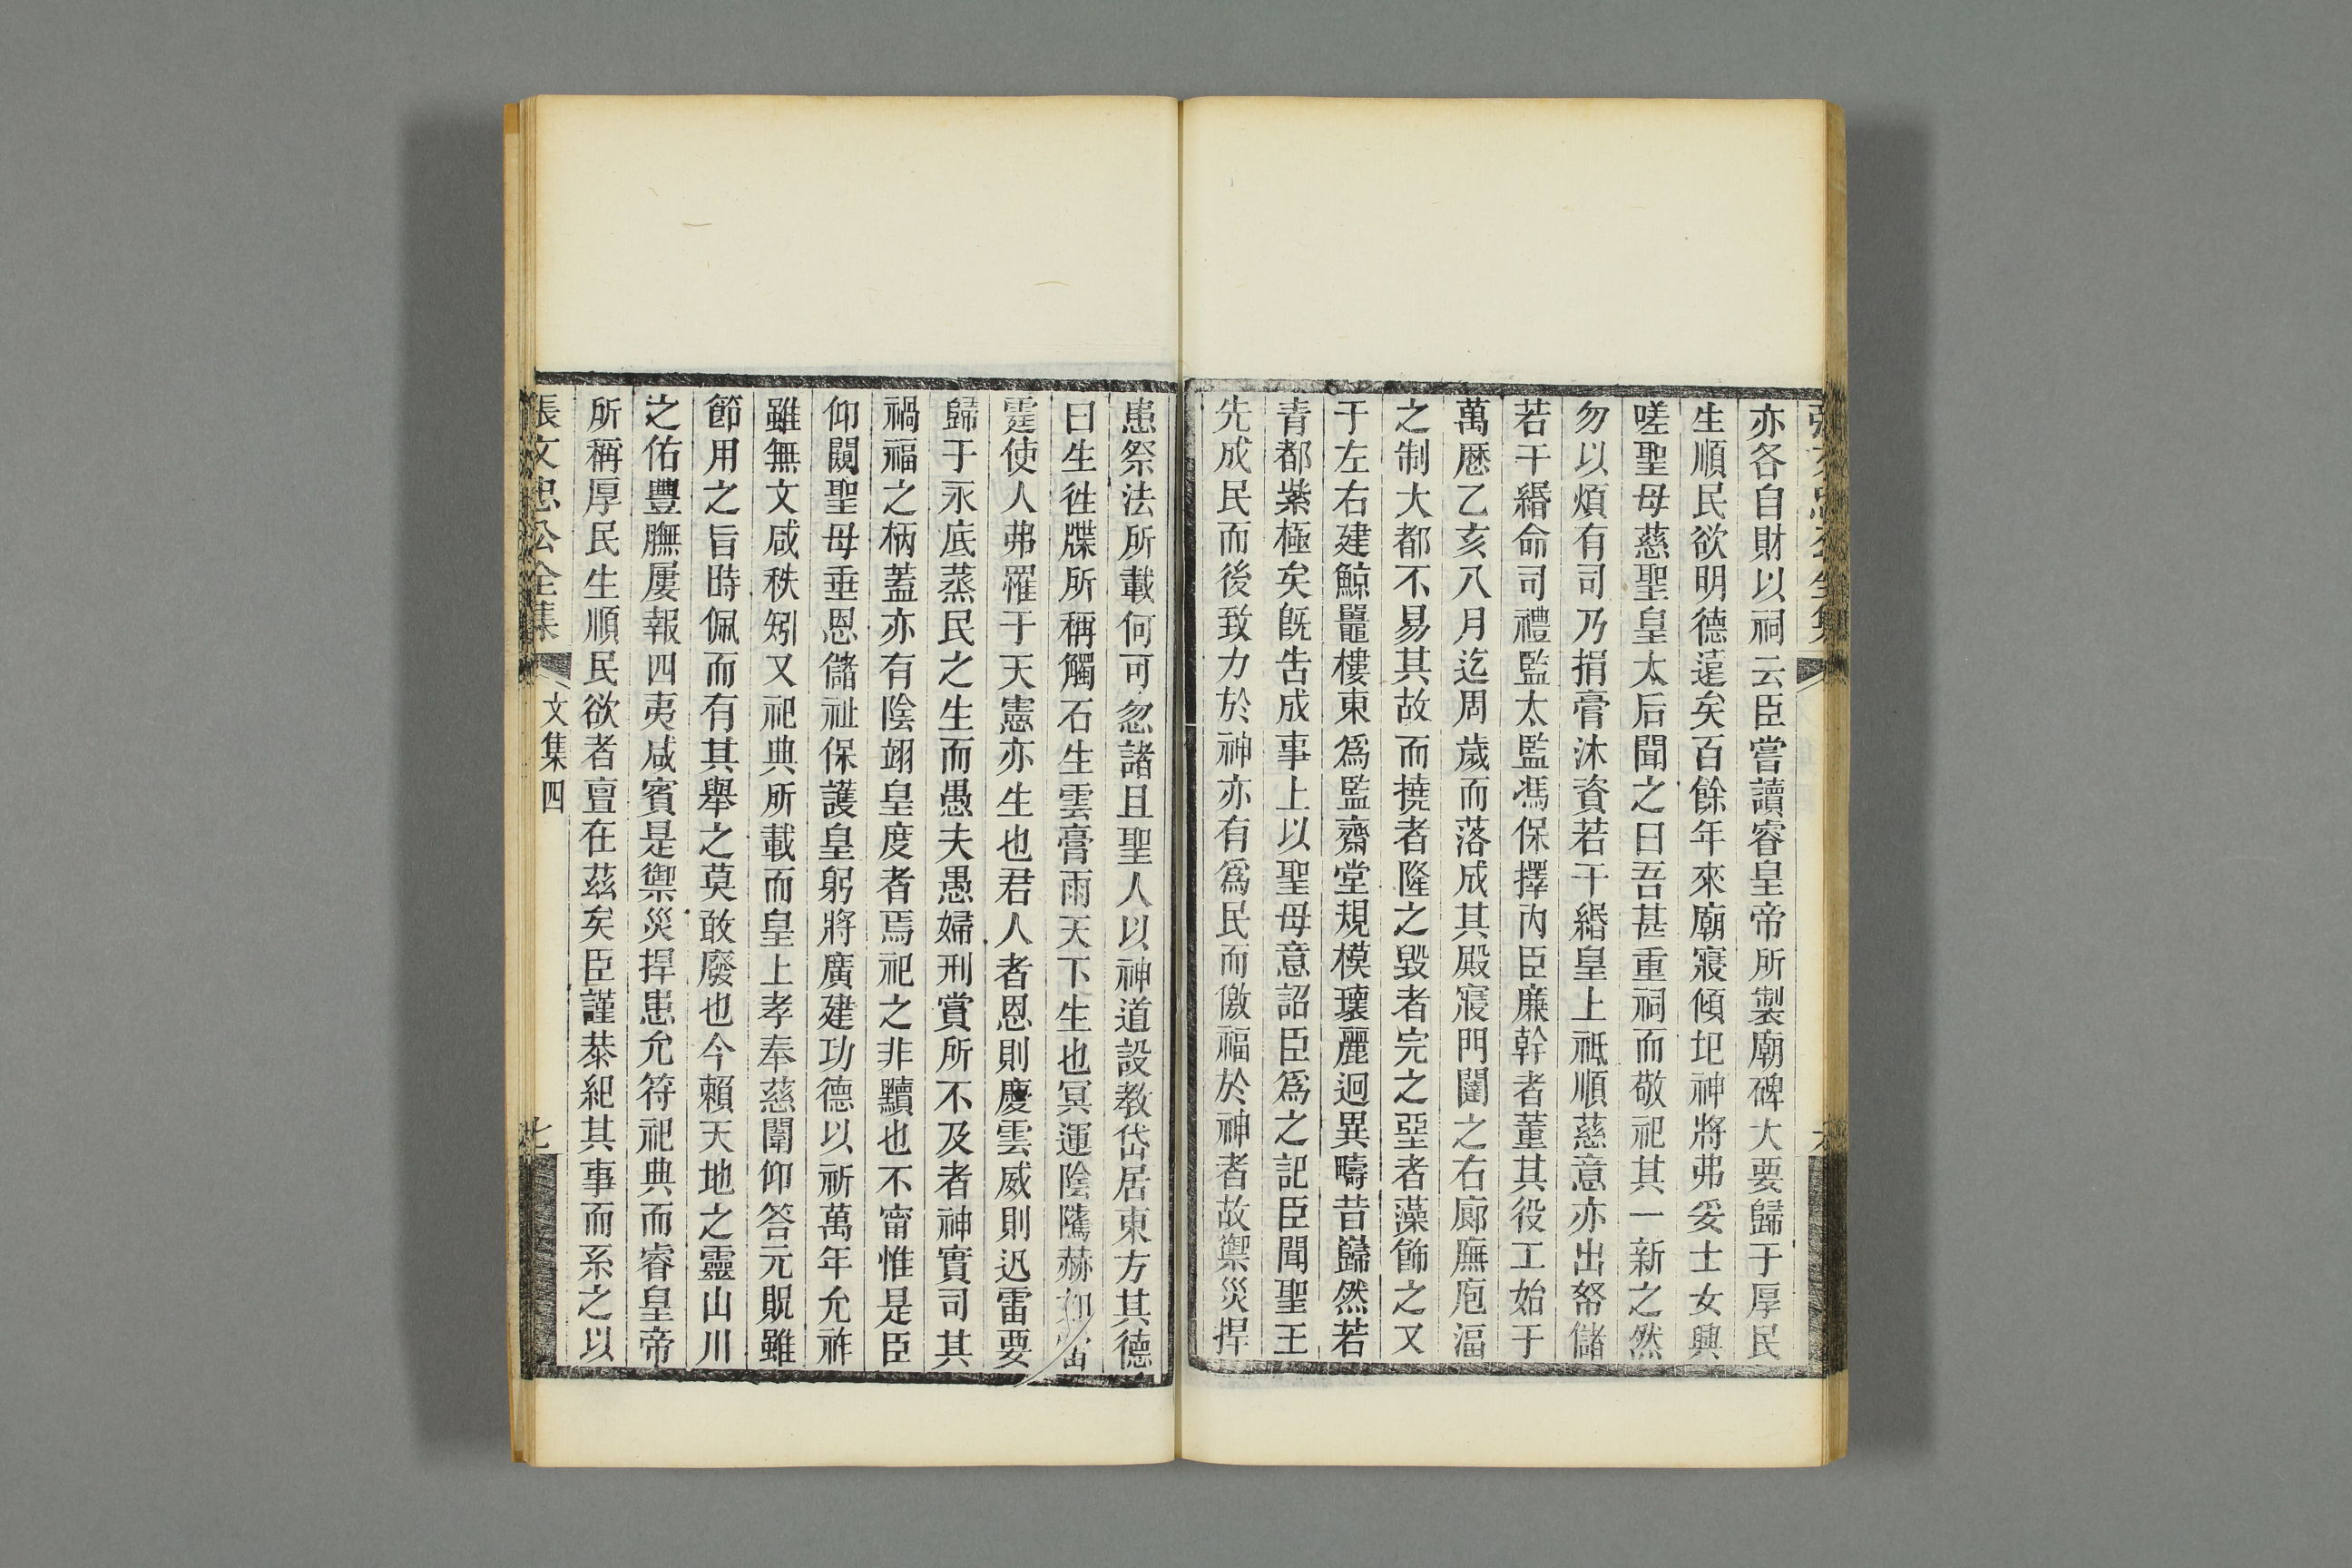 亦各自財以祠云臣嘗讀睿皇帝所製廟碑大要歸于厚民
生順民欲明德遠矣百餘年來廟寢傾圮神將弗妥士女興
嗟聖母慈聖皇太后聞之曰吾甚重祠而敬祀其一新之然
勿以煩有司乃捐膏沐資若干緡皇上祗順慈意亦出帑儲
若干緡命司禮監太監馮保擇內臣廉幹者董其役工始于
萬厯乙亥八月迄周歲而落成其殿寢門闥之右廊廡庖湢
之制大都不易其故而撓者隆之毀者完之堊者藻飾之又
于左右建鯨鼉樓東為監齋堂規模瓌麗迥異疇昔巋然若
青都紫極矣旣告成事上以聖母意詔臣為之記臣聞聖王
先成民而後致力於神亦有為民而儌福於神者故禦災捍
患祭法所載何可忽諸且聖人以神道設教岱居東方其德
曰生徃牒所稱觸石生雲膏雨天下生也冥運陰騭赫如雷
霆使人弗罹于天憲亦生也君人者恩則慶雲威則迅雷要
歸于永底蒸民之生而愚夫愚婦刑賞所不及者神實司其
禍福之柄蓋亦有陰翊皇度者焉祀之非黷也不甯惟是臣
仰闚聖母垂恩儲祉保護皇躬將廣建功德以祈萬年允祚
雖無文咸秩矧又祀典所載而皇上孝奉慈闈仰答元貺雖
節用之旨時佩而有其舉之莫敢廢也今賴天地之靈山川
之佑豐膴屢報四夷咸賓是禦災捍患允符祀典而睿皇帝
所稱厚民生順民欲者亶在茲矣臣謹恭紀其事而系之以
張文忠公全集
文集四
七